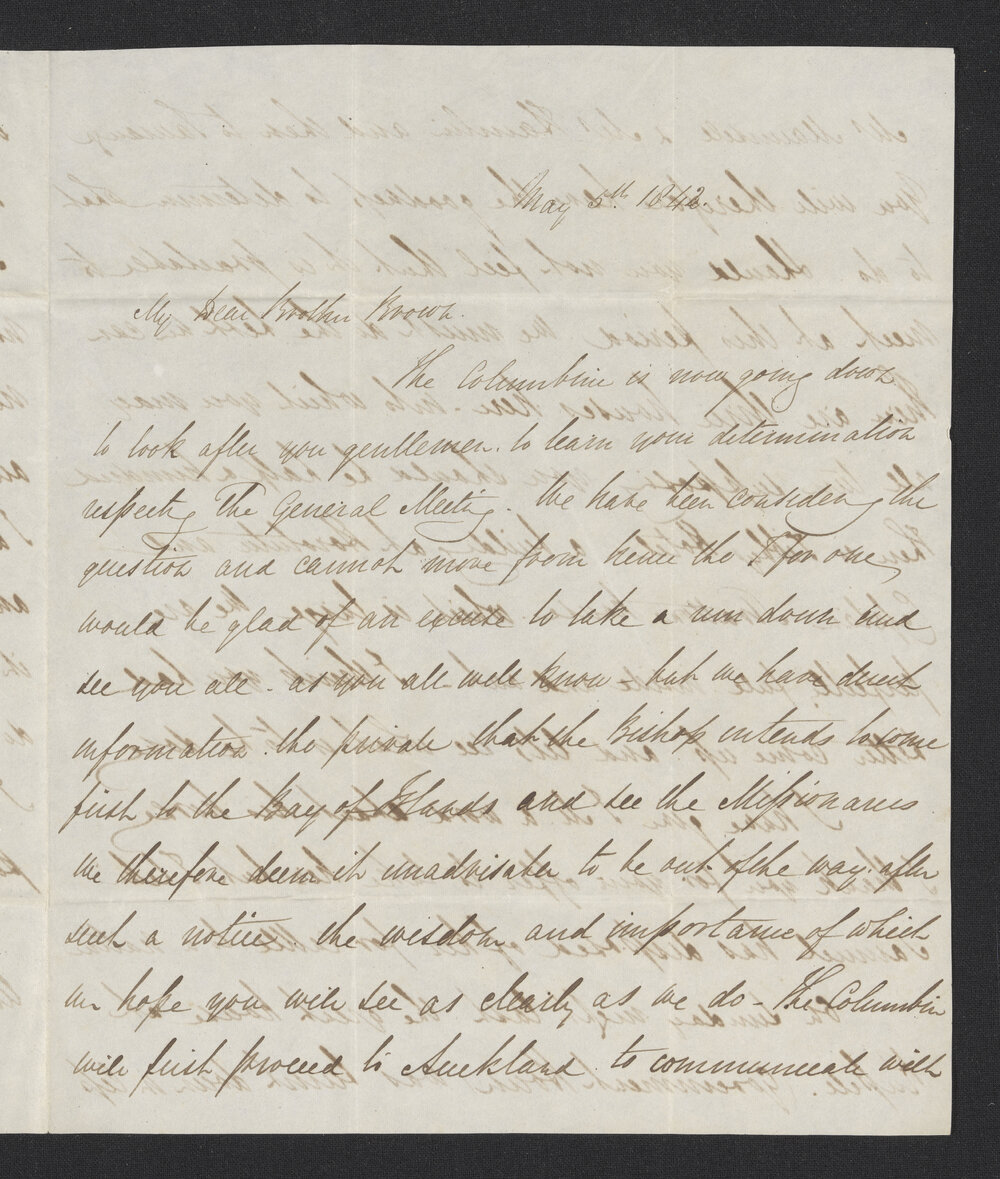 May 5th 1842.
My Dear Brother Brown.
The Columbine is now going down
to look after you gentlemen. to learn your determination
respectg The General Meeting. We have been considering the
question and cannot move from hence tho I for one
would be glad of an excuse to take a run down and
see you all - as you all well know - but we have direct
information tho private that the Bishop intends to come
first to the Bay of Islands and see the Missionaries
we therefore deem it unadvisable to be out of the way after
such a notice the wisdom and importance of which
we hope you will see as clearly as we do - The Columbine
will first proceed to Auckland to communicate with